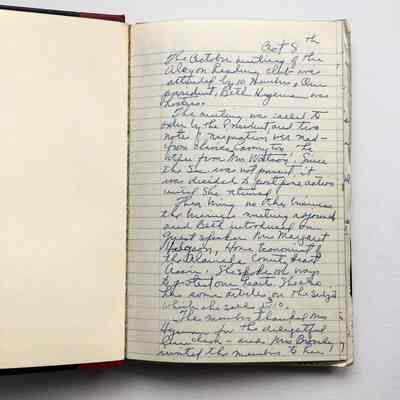 Oct 8th
The October meeting of the
Alcyon Reading Club was
attended by 10 members. Our
president, Beth Hageman was
hostess.
The meeting was called to
order by the President and two
notes of resignation were read -
from Clarice and the
other from Mrs Watson. Since
the she was not present, it
was decided to postpone action
until she returned.
There being no other business
the business meeting adjourned
and Beth introduced our
guest speaker Mrs Margaret
Home Economist of
the Alameda County Heart
Assn. She spoke on ways
to protect our hearts. She also
had some articles on the
which she sold for
The members thanked Mrs
Hageman for the delightful
luncheon - and Mrs
invited the members to her